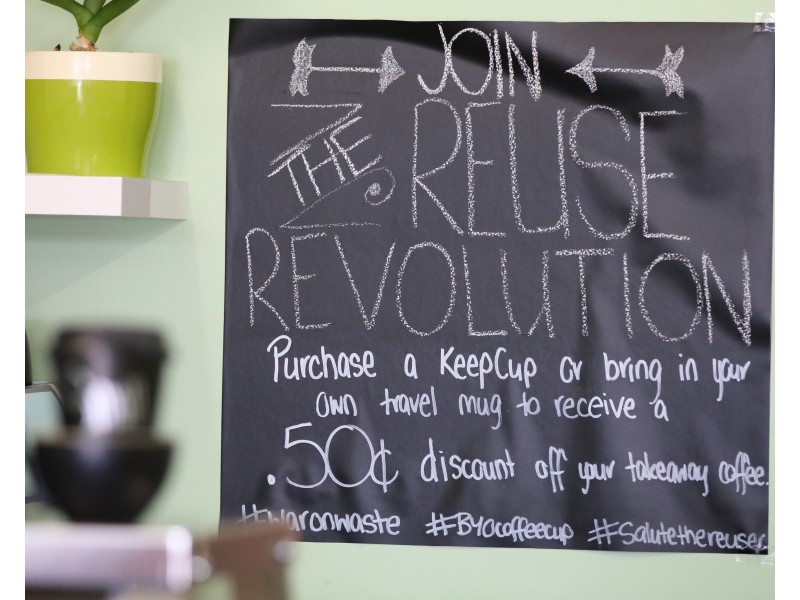 JOIN
THE REUSE
REVOLUTION
Purchase a KeepCup or bring in your
own travel mug to receive a
.50¢ discount off your takeaway coffee.
#waronwaste #BYOcoffeecup #Salutethereuser